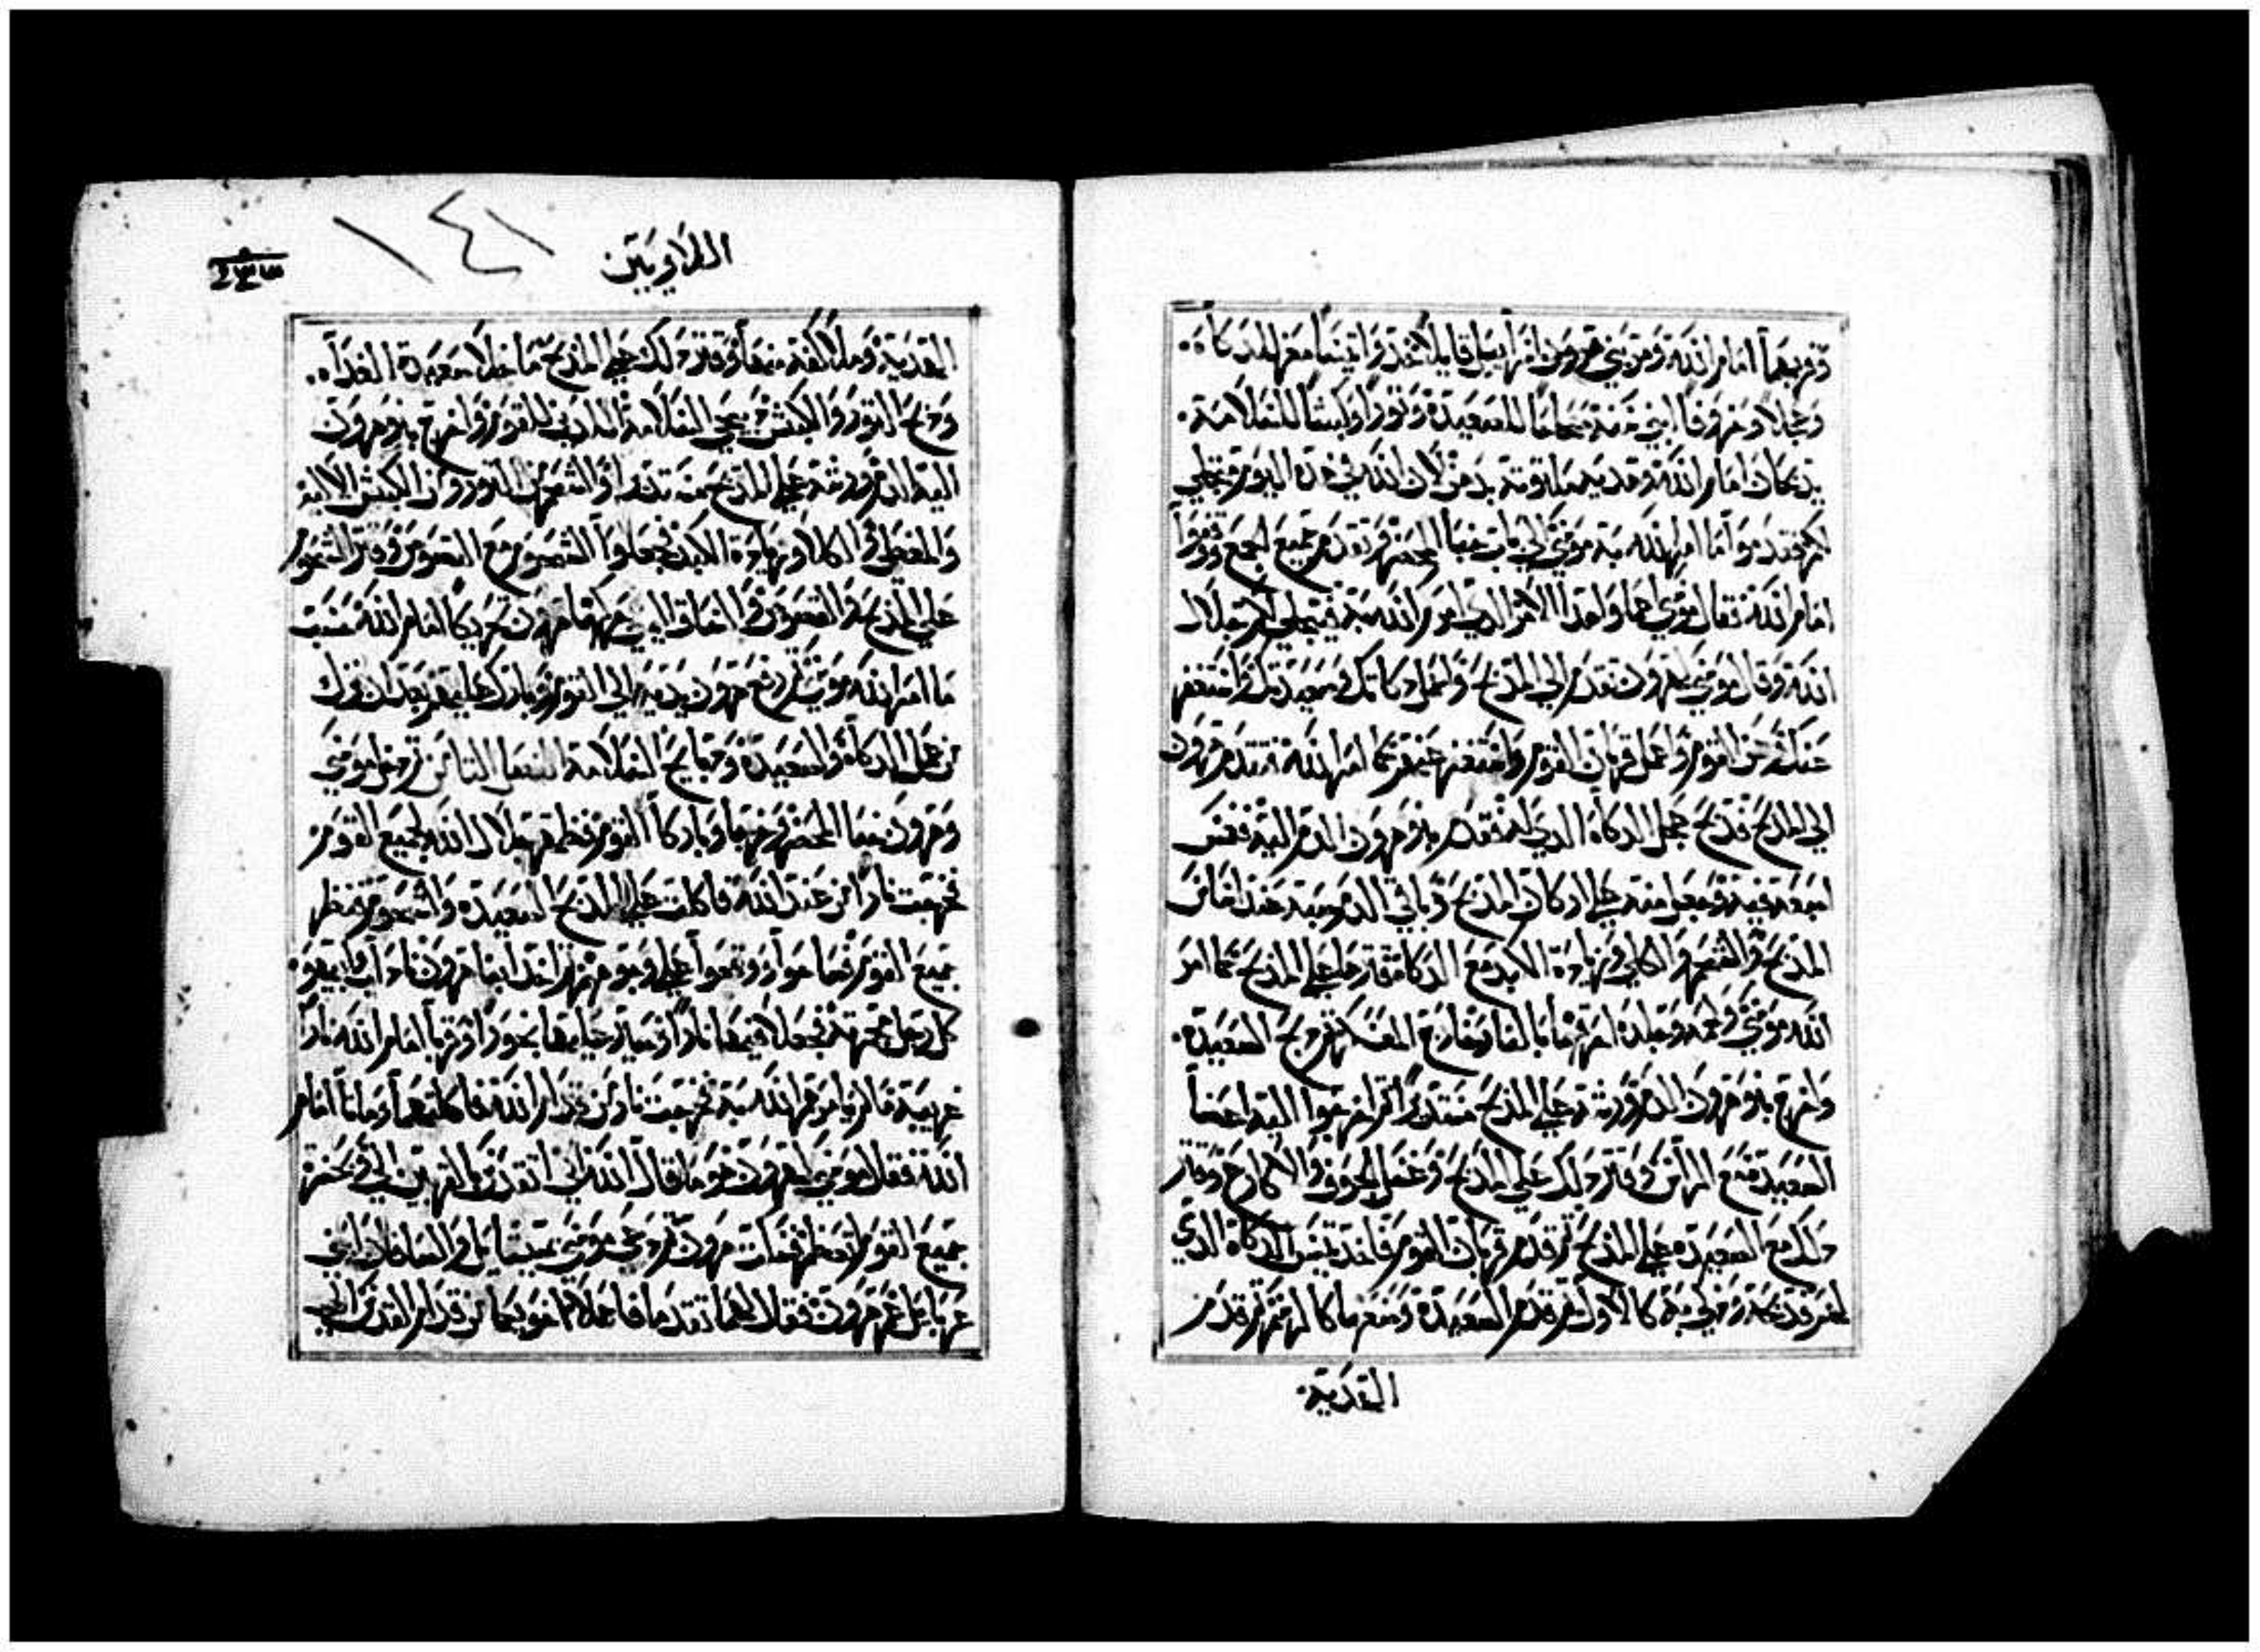 وقربهما امام الله ومر بني اسراييل قايلا خذوا تيسا معز للذكاة
وعجلا وخروفا ابني سنة صحاحا للصعيدة وثورا وكبشا للسلامة
يذبحان امام الله وهدية ملتوتة بدهن لان الله في هذه اليوم يتجلي
لكم فقدموا ما امر الله به موسي الي باب خبا المحضر وتقدم جميع الجمع ووقفوا
امام الله فقال موسي هذا الامر الذي امر الله به فيتجلي لكم جلال
الله وقال موسي لهرون تقدم الي المذبح واعمل ذكاتك وصعيدتك واستغفر
عنك وعن القوم واعمل قربان القوم واستغفر عنهم كما امر الله فتقدم هرون
الي المذبح فذبح عجل الذكاة الذي له فقدم بنو هرون الدم اليه فغمس
اصبعه فيه وجعل منه علي اركان المذبح وباقي الدم صبه عند اساس
المذبح والشحم والكلي وزيادة الكبد مع الذكاة قترها علي المذبح كما امر
الله موسي ولحمه وجلده احرقهما بالنار خارج العسكر وذبح الصعيدة
وناوله بنو هرون الدم ورشه علي المذبح مستديرا ثم ناولوا اليه اعضا
الصعيدة مع الراس وقتر ذلك علي المذبح وغسل الجوف والاكارع وقتر
ذلك مع الصعيدة علي المذبح ثم قدم قربان القوم فاخذ تيس الذكاة الذي
لهم وذبحه وذكي به كالاول ثم قدم الصعيدة وصنعها كالرسم ثم قدم
الهدية
اللاويين
١٤١
الهدية وملا كفه منها وقتر ذلك علي المذبح ما خلا صعيدة الغداة
وذبح الثور والكبش ذبح السلامة الذي للقوم وناول بنو هرون
اليه الدم ورشه علي المذبح مستديرا والشحم من الثور ومن الكبش الالية
والمغطي والكلا وزيادة الكبد فجعلوا الشحوم مع القصوص وقتر الشحوم
علي المذبح والقصوص والساق اليمني حركها هرون تحريكا امام الله حسب
ما امر الله موسي ثم رفع هرون يديه الي القوم وبارك عليهم بعد ان نزل
من عمل الذكاة والصعيدة وذبايح السلامة ثم دخل موسي
وهرون خبا المحضر وخرجا وباركا القوم فظهر جلال الله لجميع القوم
فخرجت نارا من عند الله فاكلت علي المذبح الصعيدة والشحوم فنظر
جميع القوم ووقعوا علي وجوههم ثم اخذ ابنا هرون ناداب وابيهو
كل رجل مجمرته فجعلا فيها نارا وصيرا عليها بخورا وقربا امام الله نارا
غريبة ما لم يامرهم الله به فخرجت نار من قدام الله فاكلتهما وماتا امام
الله فقال موسي لهرون هو ما قال الله اني اتقدس بالمقربين الي وبحضرة
جميع القوم اتعظم فسكت هرون ثم دعي موسي بميشايل والصافان ابني
عزيايل عم هرون فقال لهما تقدما فاحملا اخويكما من قدام القدس الي